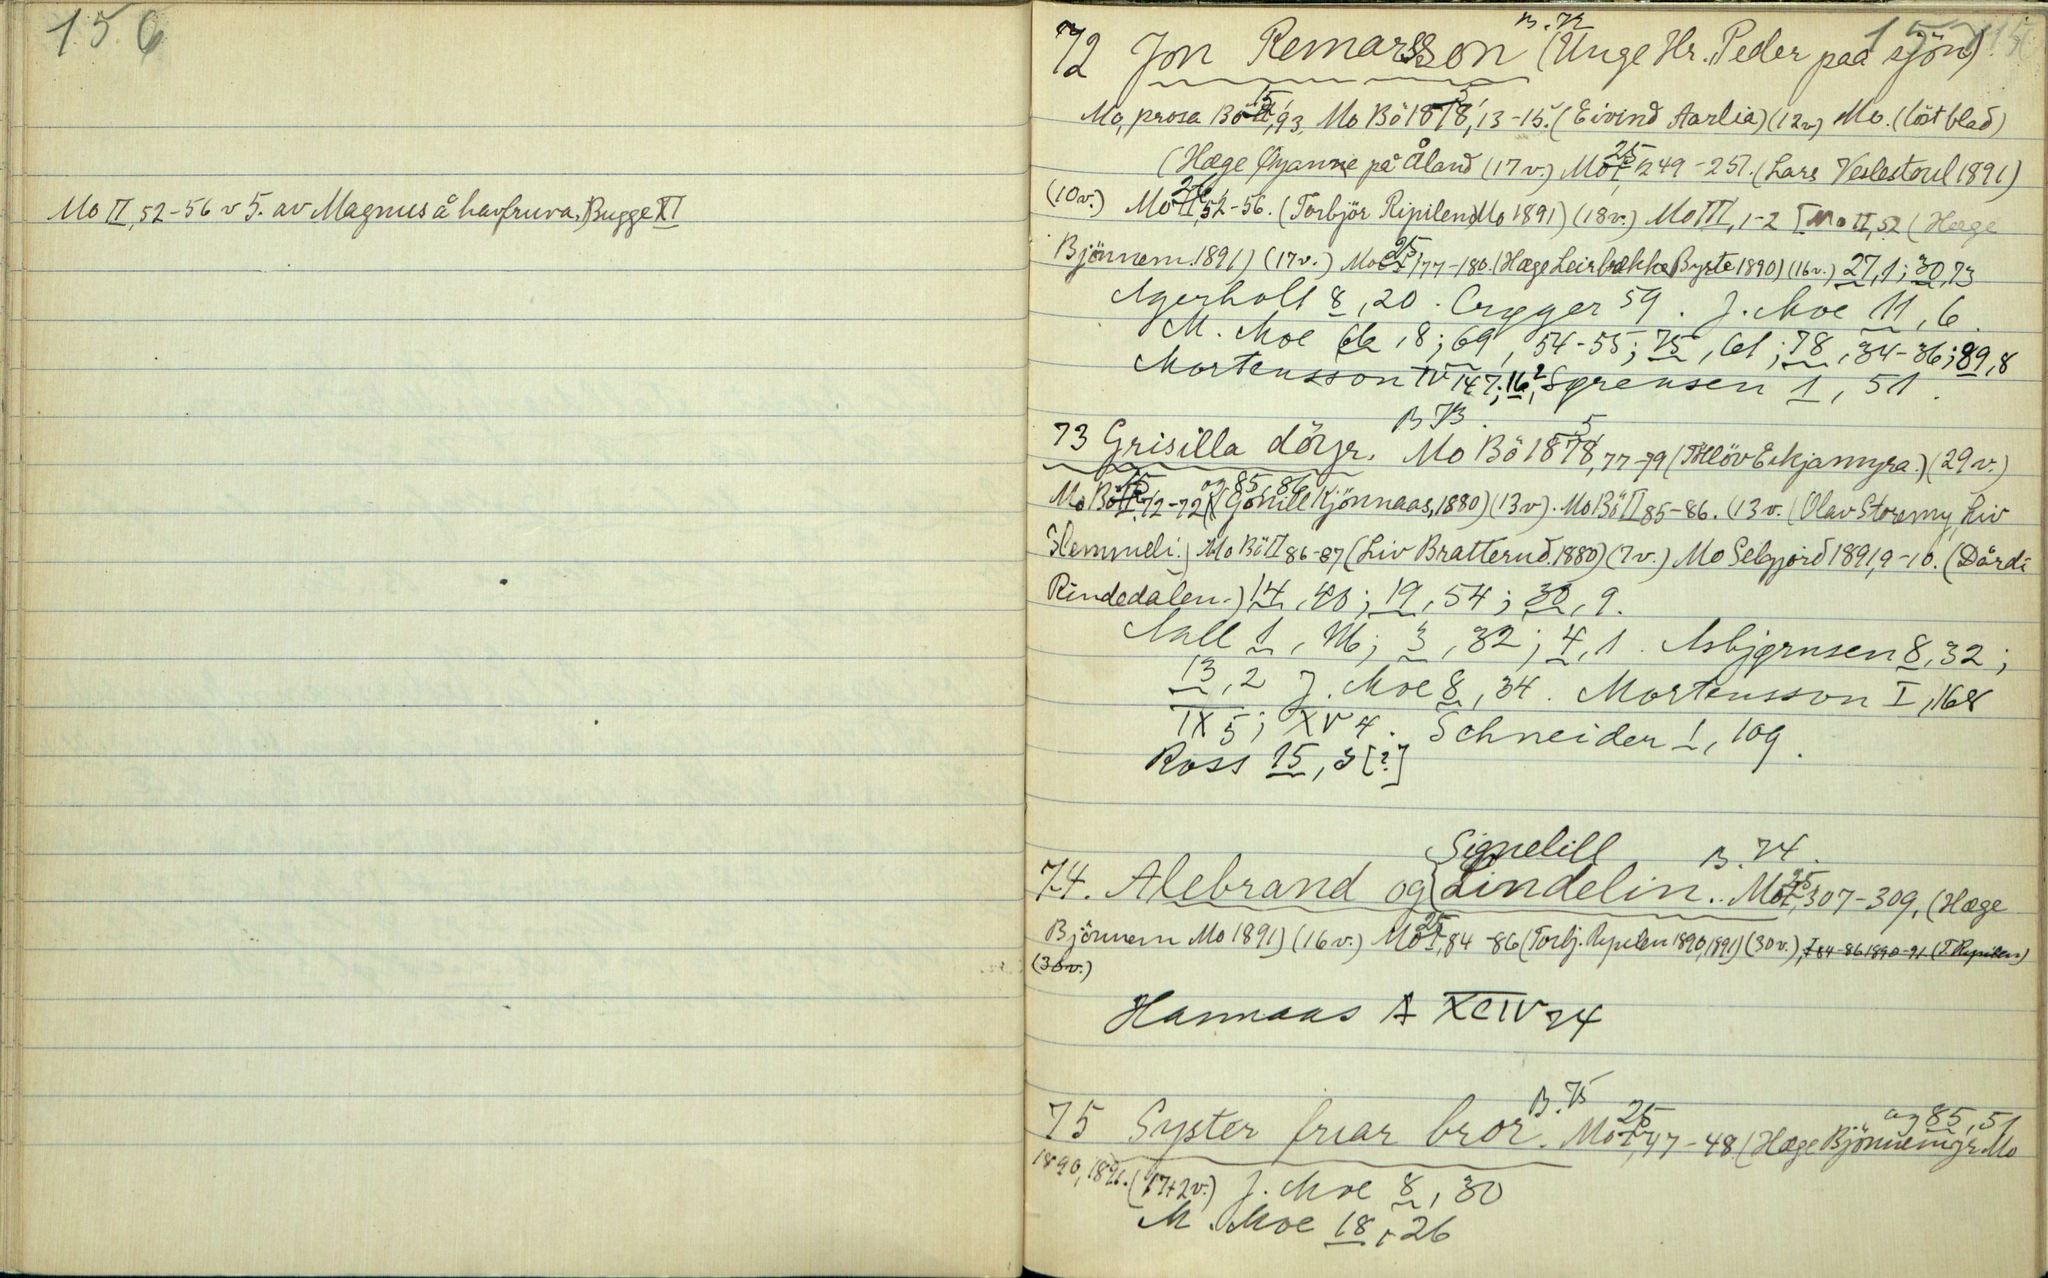 156
Mo II, 52-56 v 5. av Magnus å havfruva, Bugge XI
157
B. 72
72 Jon Remarsson (Unge Hr. Peder paa sjön)
Mo, prosa Bö 15, 93, Mo Bö 1878, 13-15. (Eivind Aarlia) (12v) Mo. (löst blad)
(Hæge Øyanne på Åland (17 v.) Mo I, 25 249-251. (Lars Veslestoul 1891)
(10v.) Mo II, 26 52-56. (Torbjör Ripilen, Mo 1891) (18v.) Mo III, 1-2 [Mo II, 52 (Hæge
Bjönnem. 1891) (17v.) Mo I 25 177-180. (Hæge Leirbække Byrte 1890) (16v.) 27, 1; 30, 73
Agerholt 8, 20. Crøger 59. J. Moe 11, 6.
M. Moe 66, 8; 69, 54-55; 75, 61; 78, 34-36; 89, 8
Mortensson IV 147; 16, 2 Sørensen 1, 51.
B 73.
73 Grisilla döyr. Mo Bö 1878, 5 77-79 (Töllöv Eikjamyra.) (29v.)
og 85, 86
Mo Bö II 15 72-72 (Gonill Kjönnaas, 1880) (13v). Mo Bö II 85-86. (13v. (Olav Storemy, Liv
Slemmeli.) Mo Bö II 86-87 (Liv Bratterud. 1880) (7v.) Mo Selgjord 1891, 9-10. (Dårdi
Rindedalen.) 14, 40; 19, 54; 30, 9.
Aall 1, M6; 3, 32; 4, 1. Asbjørnsen 8, 32;
13, 2 J. Moe 8, 34. Mortensson I, 168
IX 5; XV 4. Schneider 1, 109.
Ross 15, 3 [?]
Signelill B. 74.
74. Alebrand og Lindelin. Mo I, 25 307-309, (Hæge
Björnnem Mo 1891) (16v.) Mo I, 25 84-86 (Torbj. Ripilen 1890, 1891) (30v.), I 84-86 1890-91. (T. Ripilen)
(30v.)
Hannaas A XCIV 74
B. 75
og 85, 51
75 Syster friar bror. Mo I, 25 47-48. (Hæge Bjönnemyr Mo
1890, 1891. (17+2v.) J. Moe 8, 30
M. Moe 18, 26